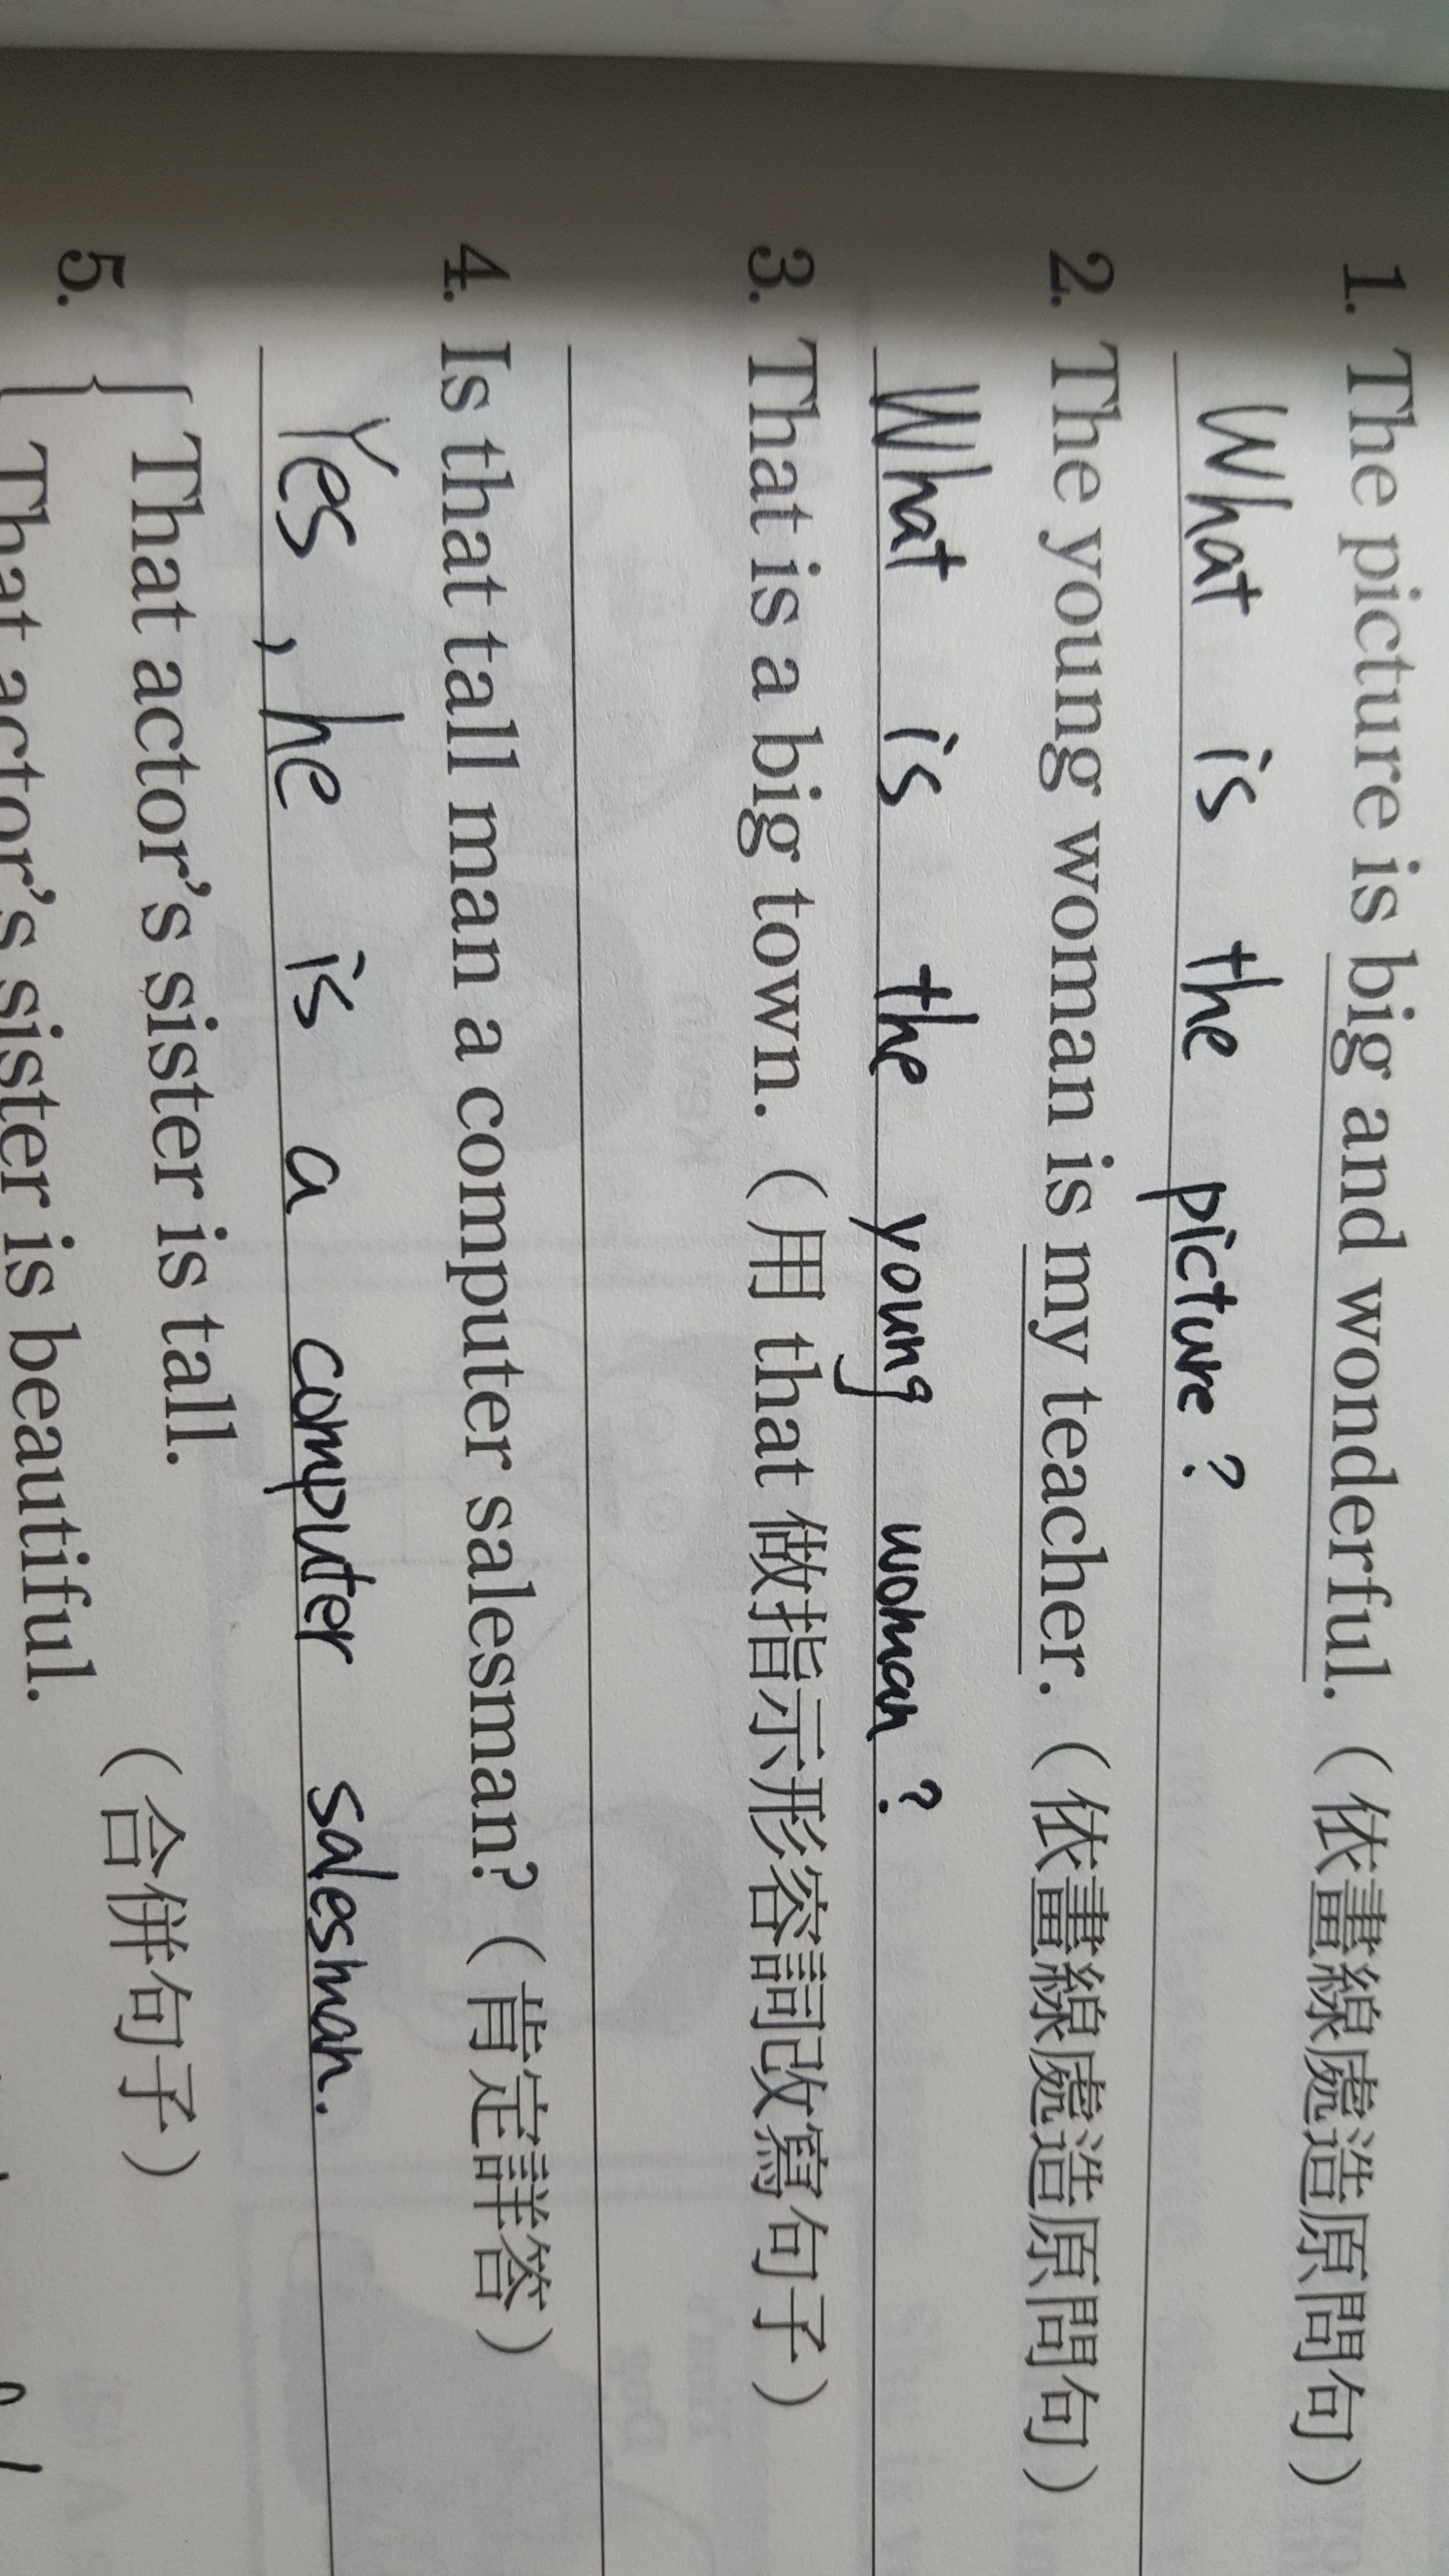 1. The picture is big and wonderful.（依畫線處造原問句）
What is the picture?
2. The young woman is my teacher.（依畫線處造原問句）
What is the young woman?
3. That is a big town.（用 that 做指示形容詞改寫句子）
4. Is that tall man a computer salesman?（肯定詳答）
Yes, he is a computer salesman.
5. That actor's sister is tall.
That actor's sister is beautiful.（合併句子）